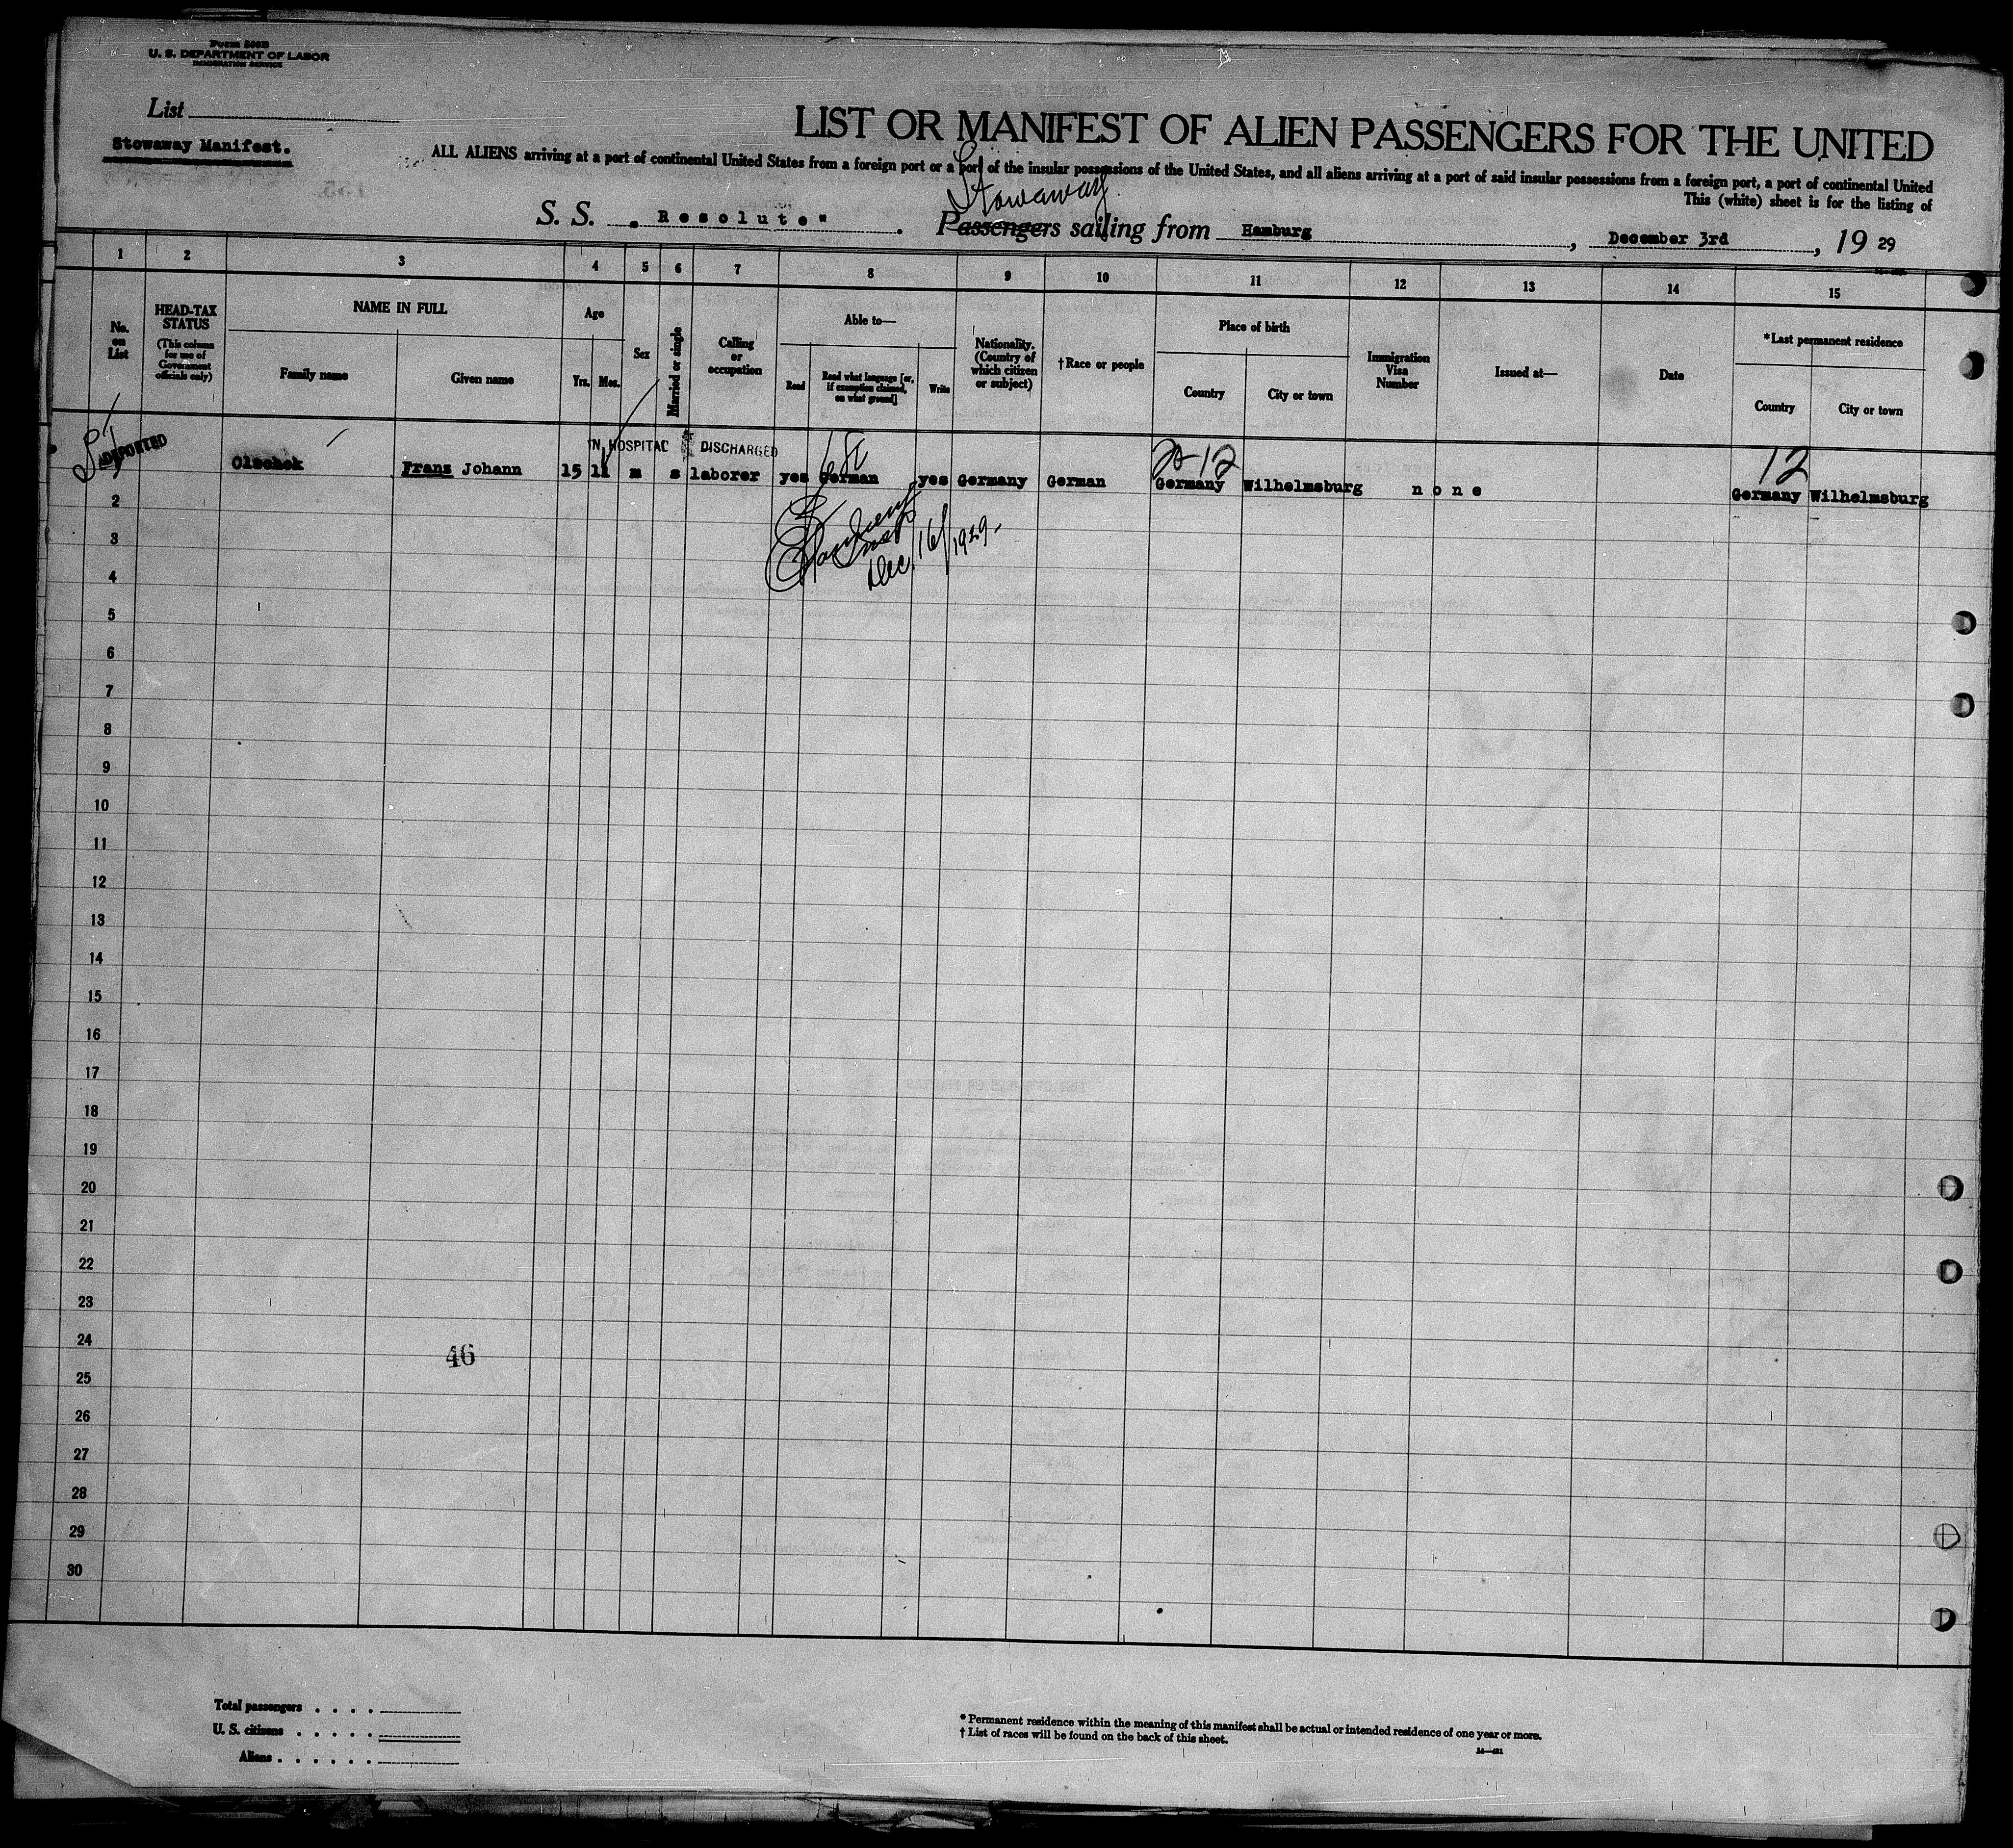 Form 500B
U. S. DEPARTMENT OF LABOR
IMMIGRATION SERVICE
List
Stowaway Manifest.
LIST OR MANIFEST OF ALIEN PASSENGERS FOR THE UNITED
ALL ALIENS arriving at a port of continental United States from a foreign port or a port of the insular possessions of the United States, and all aliens arriving at a port of said insular possessions from a foreign port, a port of continental United
This (white) sheet is for the listing of
Stowaway
S. S. "Resolute". Passengers sailing from Hamburg, December 3rd, 1929
1 2 3 4 5 6 7 8 9 10 11 12 13 14 15
No. on List
HEAD-TAX STATUS
(This column for use of Government officials only)
NAME IN FULL
Family name
Given name
Age
Yrs. Mos.
Sex
Married or single
Calling or occupation
Able to—
Read
Read what language [or, if exemption claimed, on what ground]
Write
Nationality. (Country of which citizen or subject)
†Race or people
Place of birth
Country
City or town
Immigration Visa Number
Issued at—
Date
*Last permanent residence
Country
City or town
DEPORTED
IN HOSPITAL DISCHARGED
20-12
12
Olschok Franz Johann 15 11 m s laborer yes German yes Germany German Germany Wilhelmsburg none Germany Wilhelmsburg
Dec/16/1929
2
3
4
5
6
7
8
9
10
11
12
13
14
15
16
17
18
19
20
21
22
23
24
46
25
26
27
28
29
30
Total passengers
U. S. citizens
Aliens
* Permanent residence within the meaning of this manifest shall be actual or intended residence of one year or more.
† List of races will be found on the back of this sheet.